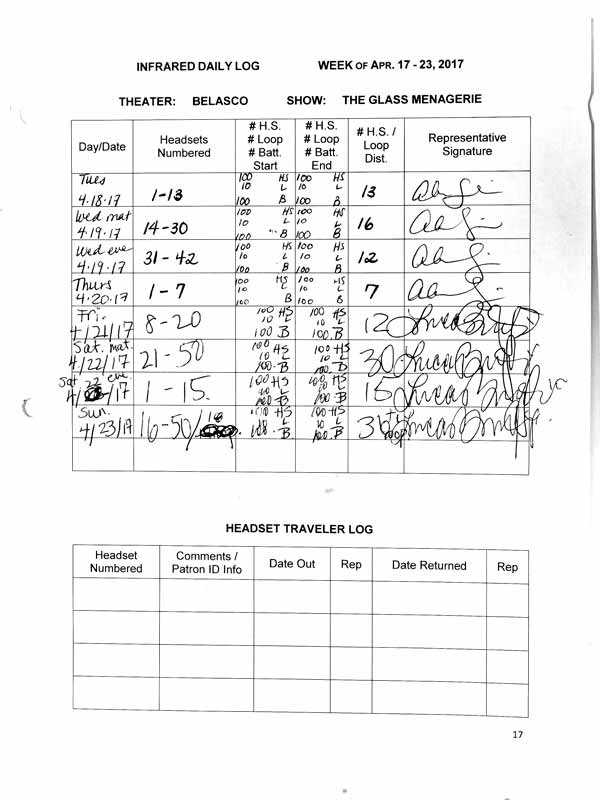 INFRARED DAILY LOG WEEK OF APR. 17 - 23, 2017
THEATER: BELASCO SHOW: THE GLASS MENAGERIE
Day/Date Headsets Numbered # H.S. # Loop # Batt. Start # H.S. # Loop # Batt. End # H.S. / Loop Dist. Representative Signature
Tues 4.18.17 1-13 100 HS 10 L 100 B 100 HS 10 L 100 B 13
Wed mat 4.19.17 14-30 100 HS 10 L 100 B 100 HS 10 L 100 B 16
Wed eve 4.19.17 31-42 100 HS 10 L 100 B 100 HS 10 L 100 B 12
Thurs 4.20.17 1-7 100 HS 10 L 100 B 100 HS 10 L 100 B 7
Fri. 4/21/17 8-20 100 HS 10 L 100 B 100 HS 10 L 100 B 12
Sat. mat. 4/22/17 21-50 100 HS 10 L 100 B 100 HS 10 L 100 B 30
Sat eve 4/22/17 1-15. 100 HS 10 L 100 B 100 HS 10 L 100 B 15
Sun. 4/23/17 16-50/ 100 HS L 100 B 100 HS 10 L 100 B
HEADSET TRAVELER LOG
Headset Numbered Comments / Patron ID Info Date Out Rep Date Returned Rep
17